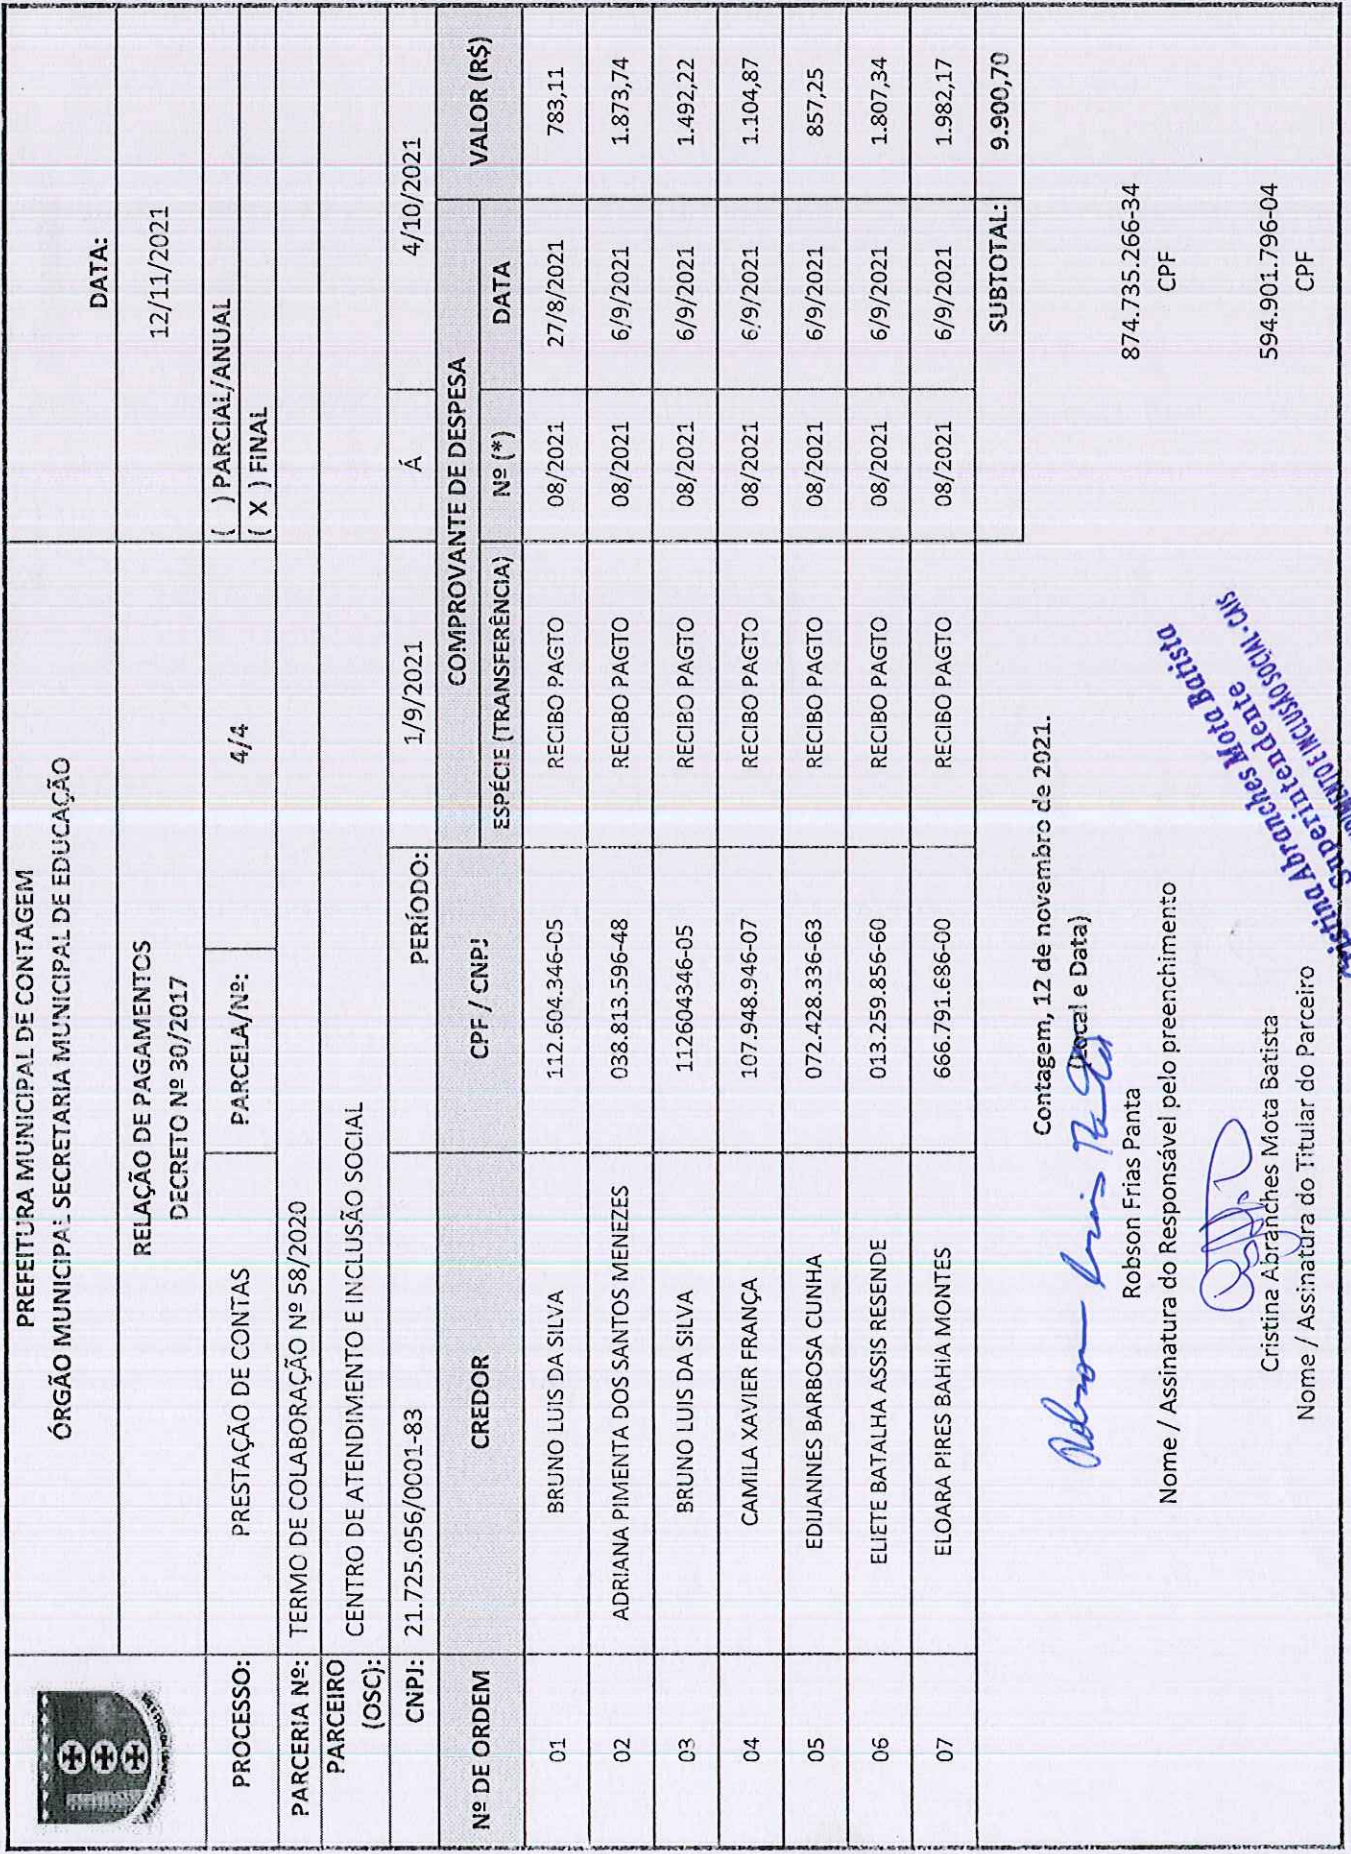 PREFEITURA MUNICIPAL DE CONTAGEM
ÓRGÃO MUNICIPAL SECRETARIA MUNICIPAL DE EDUCAÇÃO
DATA:
RELAÇÃO DE PAGAMENTOS
DECRETO Nº 30/2017
12/11/2021
PROCESSO: PRESTAÇÃO DE CONTAS PARCELA/Nº: 4/4 ( ) PARCIAL/ANUAL
( X ) FINAL
PARCERIA Nº: TERMO DE COLABORAÇÃO Nº 58/2020
PARCEIRO (OSC): CENTRO DE ATENDIMENTO E INCLUSÃO SOCIAL
CNPJ: 21.725.056/0001-83 PERÍODO: 1/9/2021 Á 4/10/2021
Nº DE ORDEM CREDOR CPF / CNPJ COMPROVANTE DE DESPESA VALOR (R$)
ESPÉCIE (TRANSFERÊNCIA) Nº (*) DATA
01 BRUNO LUIS DA SILVA 112.604.346-05 RECIBO PAGTO 08/2021 27/8/2021 783,11
02 ADRIANA PIMENTA DOS SANTOS MENEZES 038.813.596-48 RECIBO PAGTO 08/2021 6/9/2021 1.873,74
03 BRUNO LUIS DA SILVA 112604346-05 RECIBO PAGTO 08/2021 6/9/2021 1.492,22
04 CAMILA XAVIER FRANÇA 107.948.946-07 RECIBO PAGTO 08/2021 6/9/2021 1.104,87
05 EDIJANNES BARBOSA CUNHA 072.428.336-63 RECIBO PAGTO 08/2021 6/9/2021 857,25
06 ELIETE BATALHA ASSIS RESENDE 013.259.856-60 RECIBO PAGTO 08/2021 6/9/2021 1.807,34
07 ELOARA PIRES BAHIA MONTES 666.791.686-00 RECIBO PAGTO 08/2021 6/9/2021 1.982,17
SUBTOTAL: 9.900,70
Contagem, 12 de novembro de 2021.
(Local e Data)
Robson Frias Panta
Robson Frias Panta 874.735.266-34
Nome / Assinatura do Responsável pelo preenchimento CPF
Cristina Abranches Mota Batista 594.901.796-04
Nome / Assinatura do Titular do Parceiro CPF
Abranches Mota Batista
Superintendente
E INCLUSÃO SOCIAL - CAIS